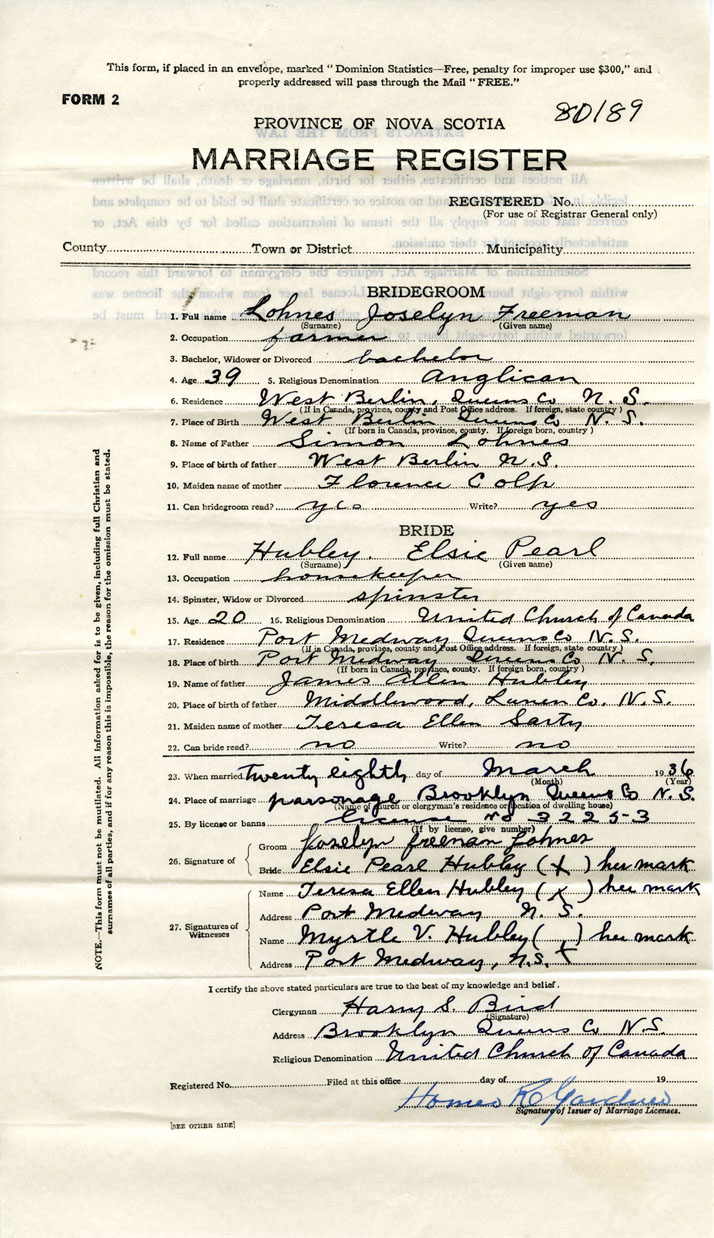 This form, if placed in an envelope, marked "Dominion Statistics—Free, penalty for improper use $300," and
properly addressed will pass through the Mail "FREE."
FORM 2
80189
PROVINCE OF NOVA SCOTIA
MARRIAGE REGISTER
REGISTERED No.
(For use of Registrar General only)
County Town or District Municipality
BRIDEGROOM
1. Full name Lohnes Joselyn Freeman
(Surname) (Given name)
2. Occupation farmer
3. Bachelor, Widower or Divorced bachelor
4. Age 39 5. Religious Denomination Anglican
6. Residence West Berlin, Queens Co N. S.
(If in Canada, province, county and Post Office address. If foreign, state country)
7. Place of Birth West Berlin Queens Co N. S.
(If born in Canada, province, county. If foreign born, country)
8. Name of Father Simon Lohnes
9. Place of birth of father West Berlin N.S.
10. Maiden name of mother Florence Colp
11. Can bridegroom read? yes Write? yes
BRIDE
12. Full name Hubley. Elsie Pearl
(Surname) (Given name)
13. Occupation housekeeper
14. Spinster, Widow or Divorced spinster
15. Age 20 16. Religious Denomination United Church of Canada
17. Residence Port Medway Queens Co N. S.
(If in Canada, province, county and Post Office address. If foreign, state country)
18. Place of birth Port Medway Queens Co N. S.
(If born in Canada, province, county. If foreign born, country)
19. Name of father James Allen Hubley
20. Place of birth of father Middlewood, Lunen Co. N.S.
21. Maiden name of mother Teresa Ellen Sarty
22. Can bride read? no Write? no
23. When married twenty eighth day of March 1936
(Month) (Year)
24. Place of marriage parsonage Brooklyn Queens Co N. S.
(Name of church or clergyman's residence or location of dwelling house)
25. By license or banns license No 3225-3
(If by license, give number)
26. Signature of
Groom Joselyn freeman Lohnes
Bride Elsie Pearl Hubley (X) her mark
27. Signatures of Witnesses
Name Teresa Ellen Hubley (X) her mark
Address Port Medway N. S.
Name Myrtle V. Hubley ( ) her mark
Address Port Medway, N.S. X
I certify the above stated particulars are true to the best of my knowledge and belief.
Clergyman Harry S. Bird
(Signature)
Address Brooklyn Queens Co N.S.
Religious Denomination United Church of Canada
Registered No. Filed at this office day of 19
Homer R Gardner
Signature of Issuer of Marriage Licenses.
[SEE OTHER SIDE]
NOTE.—This form must not be mutilated. All information asked for is to be given, including full Christian and
surnames of all parties, and if for any reason this is impossible, the reason for the omission must be stated.